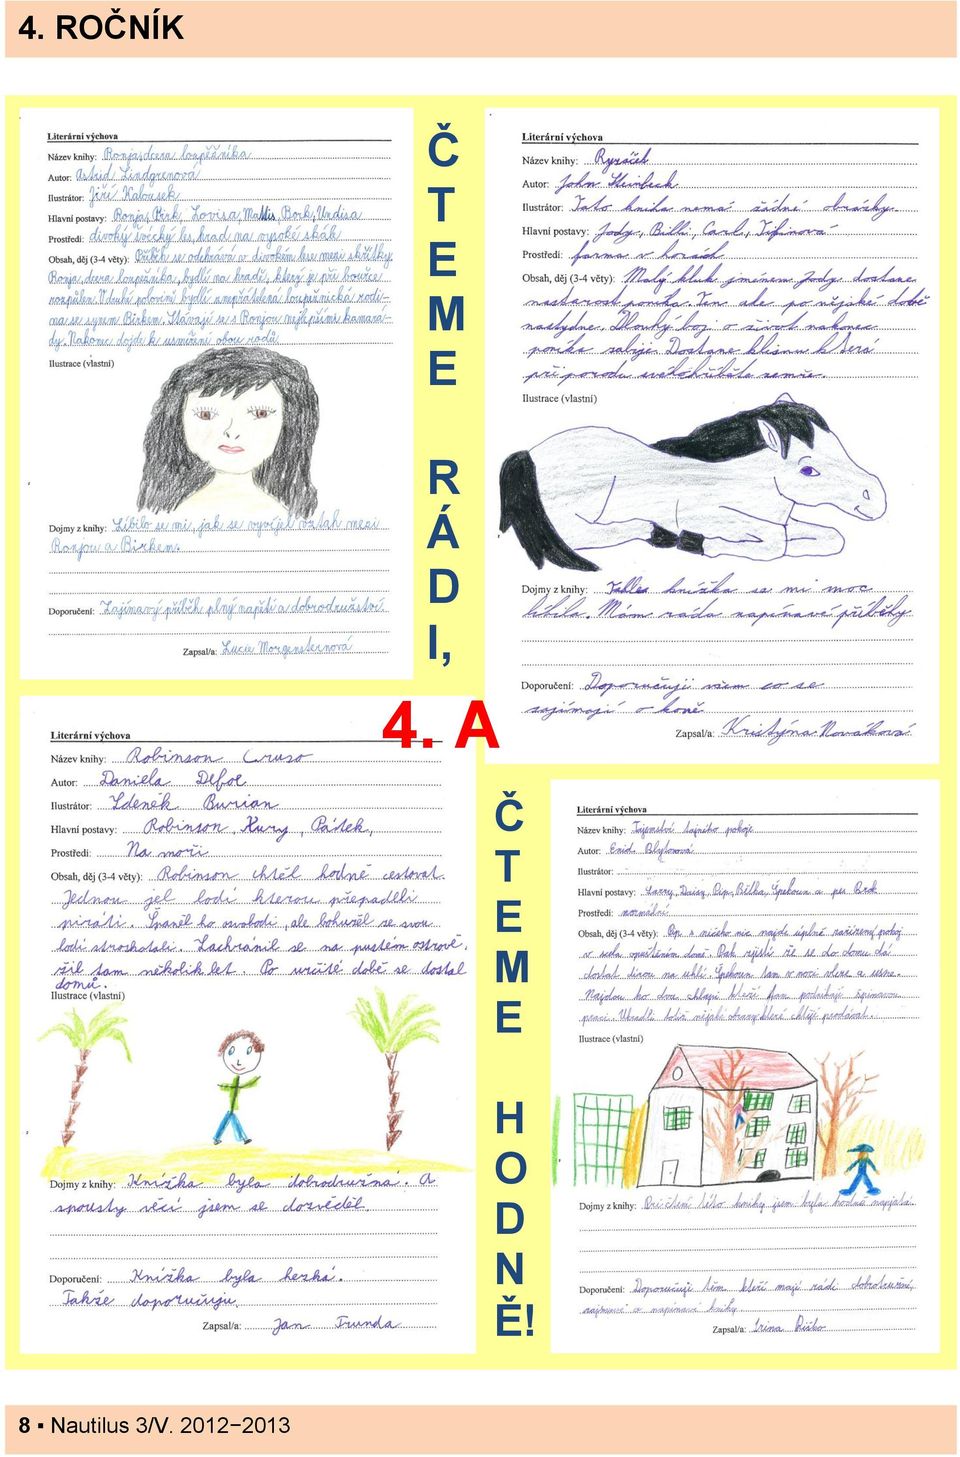 4. ROČNÍK
Literární výchova
Název knihy: Ronja, dcera loupežníka
Autor: Astrid Lindgrenová
Ilustrátor: Jiří Kalousek
Hlavní postavy: Ronja, Birk, Lovisa, Mattis, Bork, Undisa
Prostředí: divoký švécký les, hrad na vysoké skále
Obsah, děj (3-4 věty): Příběh se odehrává v divokém lese mezi skřítky.
Ronja, dcera loupežníka, bydlí na hradě, který je při bouřce
rozpůlen. V druhé polovině bydlí znepřátelená loupežnická rodi-
na se synem Birkem. Stávají se s Ronjou nejlepšími kamará-
dy. Nakonec dojde k usmíření obou rodů.
Ilustrace (vlastní)
Dojmy z knihy: Líbilo se mi, jak se vyvíjel vztah mezi
Ronjou a Birkem.
Doporučení: Zajímavý příběh plný napětí a dobrodružství
Zapsal/a: Lucie Morgensternová
Č
T
E
M
E
R
Á
D
I,
Literární výchova
Název knihy: Ryzáček
Autor: John Steinbeck
Ilustrátor: Tato kniha nemá žádné obrázky.
Hlavní postavy: Jody, Billi, Carl, Tiflinová
Prostředí: farma v horách
Obsah, děj (3-4 věty): Malý kluk jménem Jody dostane
nastarost poníka. Ten ale po nějaké době
nastydne. Dlouhý boj o život nakonec
poníka zabije. Dostane klisnu která
při porodu hříběte zemře.
Ilustrace (vlastní)
Dojmy z knihy: knížka se mi moc
líbila. Mám ráda napínavé příběhy
Doporučení: Doporučuji všem co se
zajímají o koně
Zapsal/a: Kristýna Nováková
4. A
Literární výchova
Název knihy: Robinson Cruso
Autor: Daniela Defoe
Ilustrátor: Zdeněk Burian
Hlavní postavy: Robinson, Xury, Pátek,
Prostředí: Na moři
Obsah, děj (3-4 věty): Robinson chtěl hodně cestovat.
Jednou jel lodí kterou přepadli
piráti. Španěl ho osvobodi, ale bohužel se svou
lodi stroskotali. Zachránil se na pustém ostrově,
žil tam několik let. Po určité době se dostal
domů.
Ilustrace (vlastní)
Dojmy z knihy: Knížka byla dobrodružná. A
spousty věcí jsem se dozvěděl.
Doporučení: Knížka byla hezká.
Takže doporučuju.
Zapsal/a: Jan Trunda
Č
T
E
M
E
H
O
D
N
Ě!
Literární výchova
Název knihy: Tajemství tajného pokoje
Autor: Enid Blytonová
Ilustrátor:
Hlavní postavy: Larry, Daisy, Pip, Bětka, Špekoun a pes Brok
Prostředí: normální
Obsah, děj (3-4 věty): Pip z ničeho nic najde úplně zařízený pokoj
v zcela opuštěném domě. Pak zjistí že se do domu dá
dostat dírou na uhlí. Špekoun tam v noci vleze a usne.
Najdou ho dva chlapi kteří tam podnikají špinavou
práci. Ukradli totiž nějaké obrazy které chtějí prodávat.
Ilustrace (vlastní)
Dojmy z knihy: Při čtení této knihy jsem byla hodně napjatá.
Doporučení: Doporučuji těm kteří mají rádi dobrodružné,
zajímavé a napínavé knihy.
Zapsal/a: Irina Riško
8 ▪ Nautilus 3/V. 2012–2013